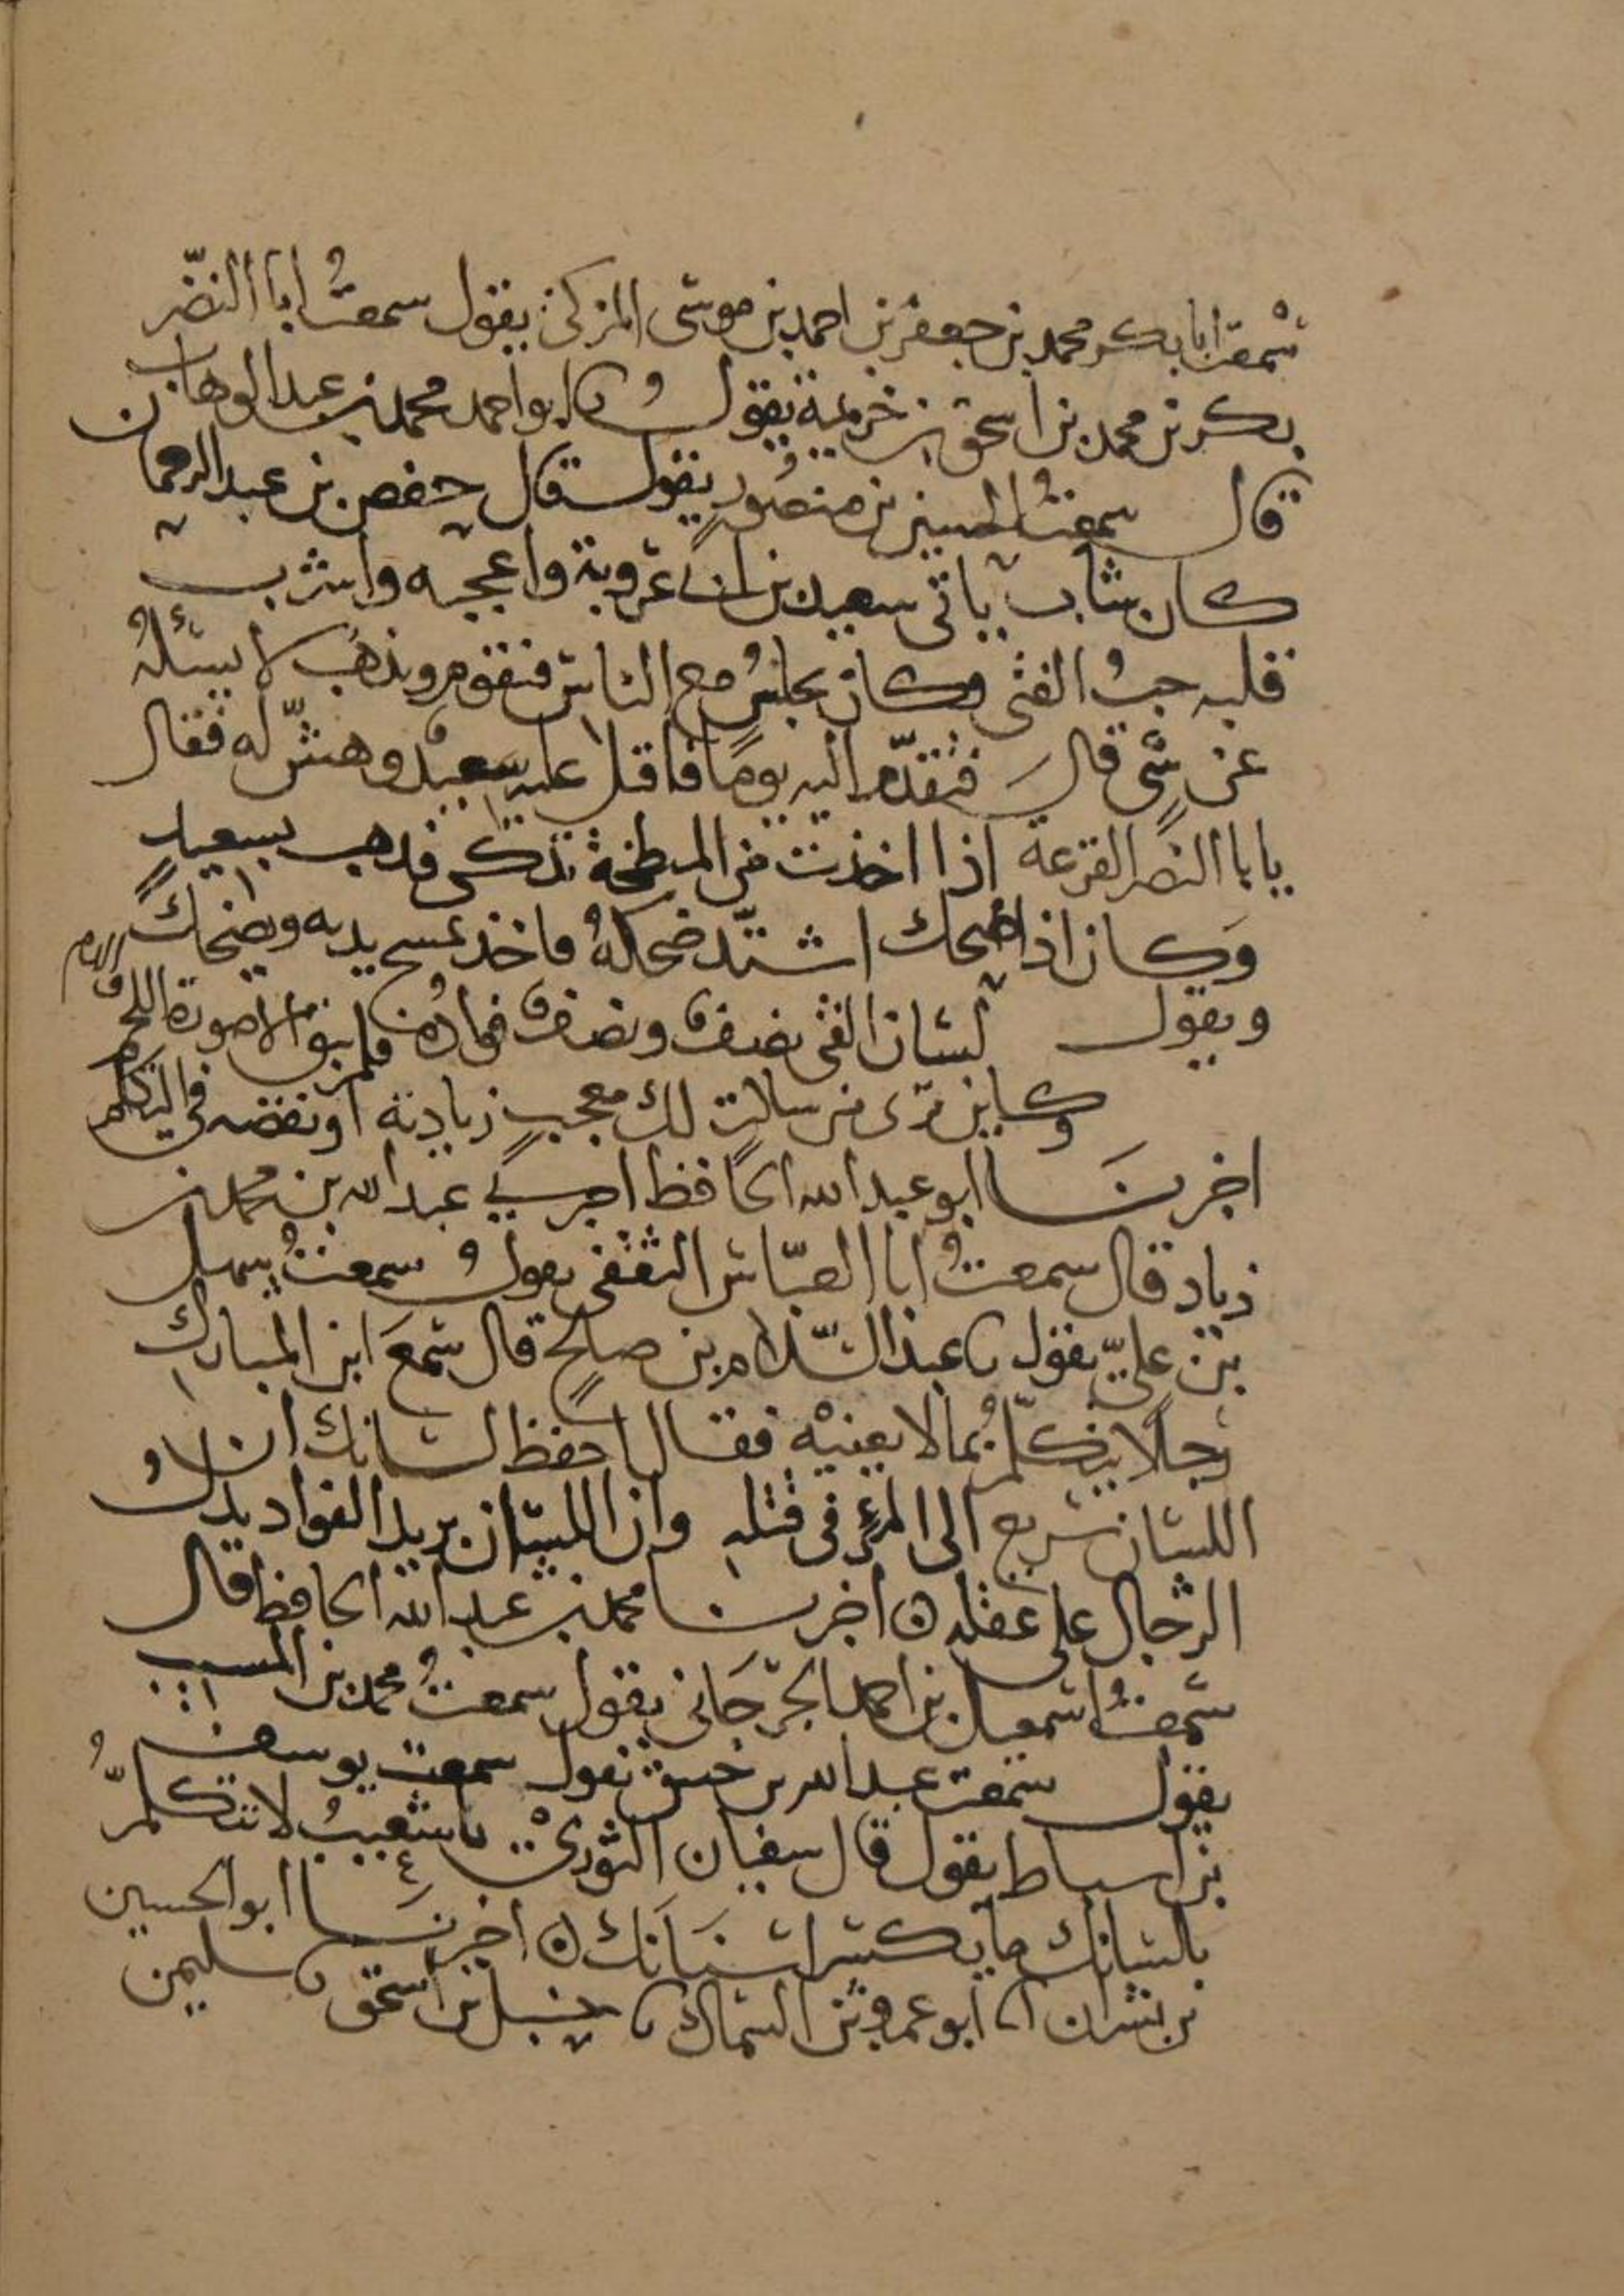 سمعت ابا بكر محمد بن جعفر بن احمد بن موسى المزكي يقول سمعتُ ابا النضّر
بكر بن محمد بن اسحق بن خزيمة يقول ثنا ابو احمد محمد بن عبد الوهاب
قال سمعتُ الحسين بن منصورٍ يقول قال حفص بن عبد الرحمان
كان شاب ياتي سعيد بن ابي عروبة واعجبه واشرب
قلبه حبُ الفتى وكان يجلسُ مع الناس فيقوم ويذهبُ لا يسئلهُ
عن شيٍ قال فتقدّم اليه يومًا فاقبل عليه سعيدٌ وهشّ له فقال
يا با النضر القرعة اذا اخذت من المبطخة تذكى فذهب بسعيدٍ
وكان اذا ضحك اشتدّ ضحكهُ فاخذ يمسح يديه ويضحك
ويقول لسان الفتى نصفٌ ونصفٌ فوادُه فلم يبق الا صورة اللحم والدم
وكاين ترى من ساكتٍ لك معجبٍ زيادته او نقصه في التكلم
اخبرنا ابو عبد الله الحافظ اخبرني عبد الله بن محمد بن
زياد قال سمعتُ ابا العبّاس الثقفي يقول سمعتُ سهل
بن عليّ يقول ثنا عبد السّلام بن صالحٍ قال سمعَ ابن المباركِ
رجلًا يتكلّمُ بما لا يعنيْه فقال احفظ لسانك ان
اللسان سريع الى المرءِ في قتلهِ وان اللسان بريد الفواد يدل
الرجال على عقله اخبرنا محمد بن عبد الله الحافظ قال
سمعتُ اسمعيل بن احمد الجرجَاني يقول سمعتُ محمد بن المسيب
يقول سمعت عبد الله بن خبيق يقول سمعت يوسف
بن اسباط يقول قال سفيان الثوريْ يا شعيبُ لا تتكلمُ
بلسانك ما يكسر اسنَانَك اخبرنَا ابو الحسين
بن بشران انا ابو عمرو بن السماك ثنا حنبل بن اسحق ثنا سليمن